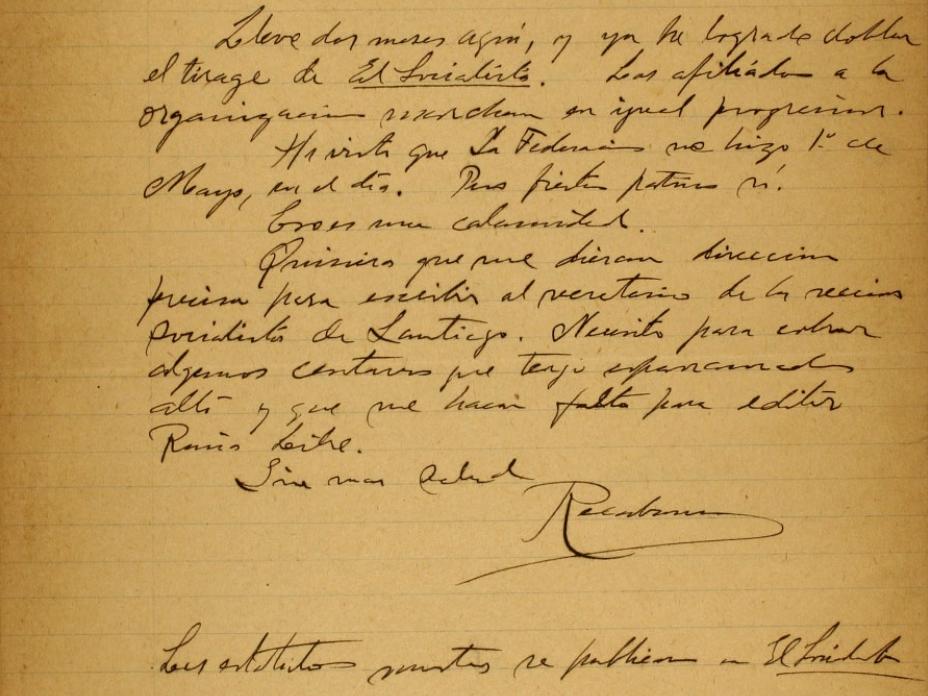 Llevo dos meses aquí, y ya he logrado doblar
el tirage de El Socialista. Los afiliados a la
organizacion marchan en igual progresion.
He visto que La Federacion no hizo 1º de
Mayo, en el dia. Pero fiestas patrias sí.
Eso es una calamidad.
Quisiera que me dieran direccion
precisa para escribir al secretario de la seccion
socialista de Santiago. Necesito para cobrar
algunos centavos que tengo
allá y que me hacen falta para editar
Libre.
Sin mas salud
Recabarren
Los estatutos se publican en El Socialista